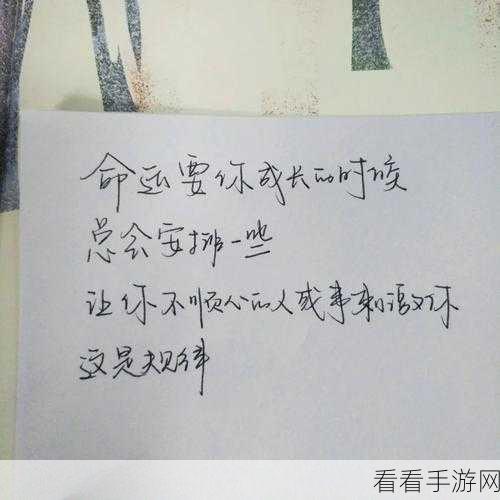 命运要你成长的时候
总会安排一些
让你不顺心的人或事刺激你
这是规律
看看手游网